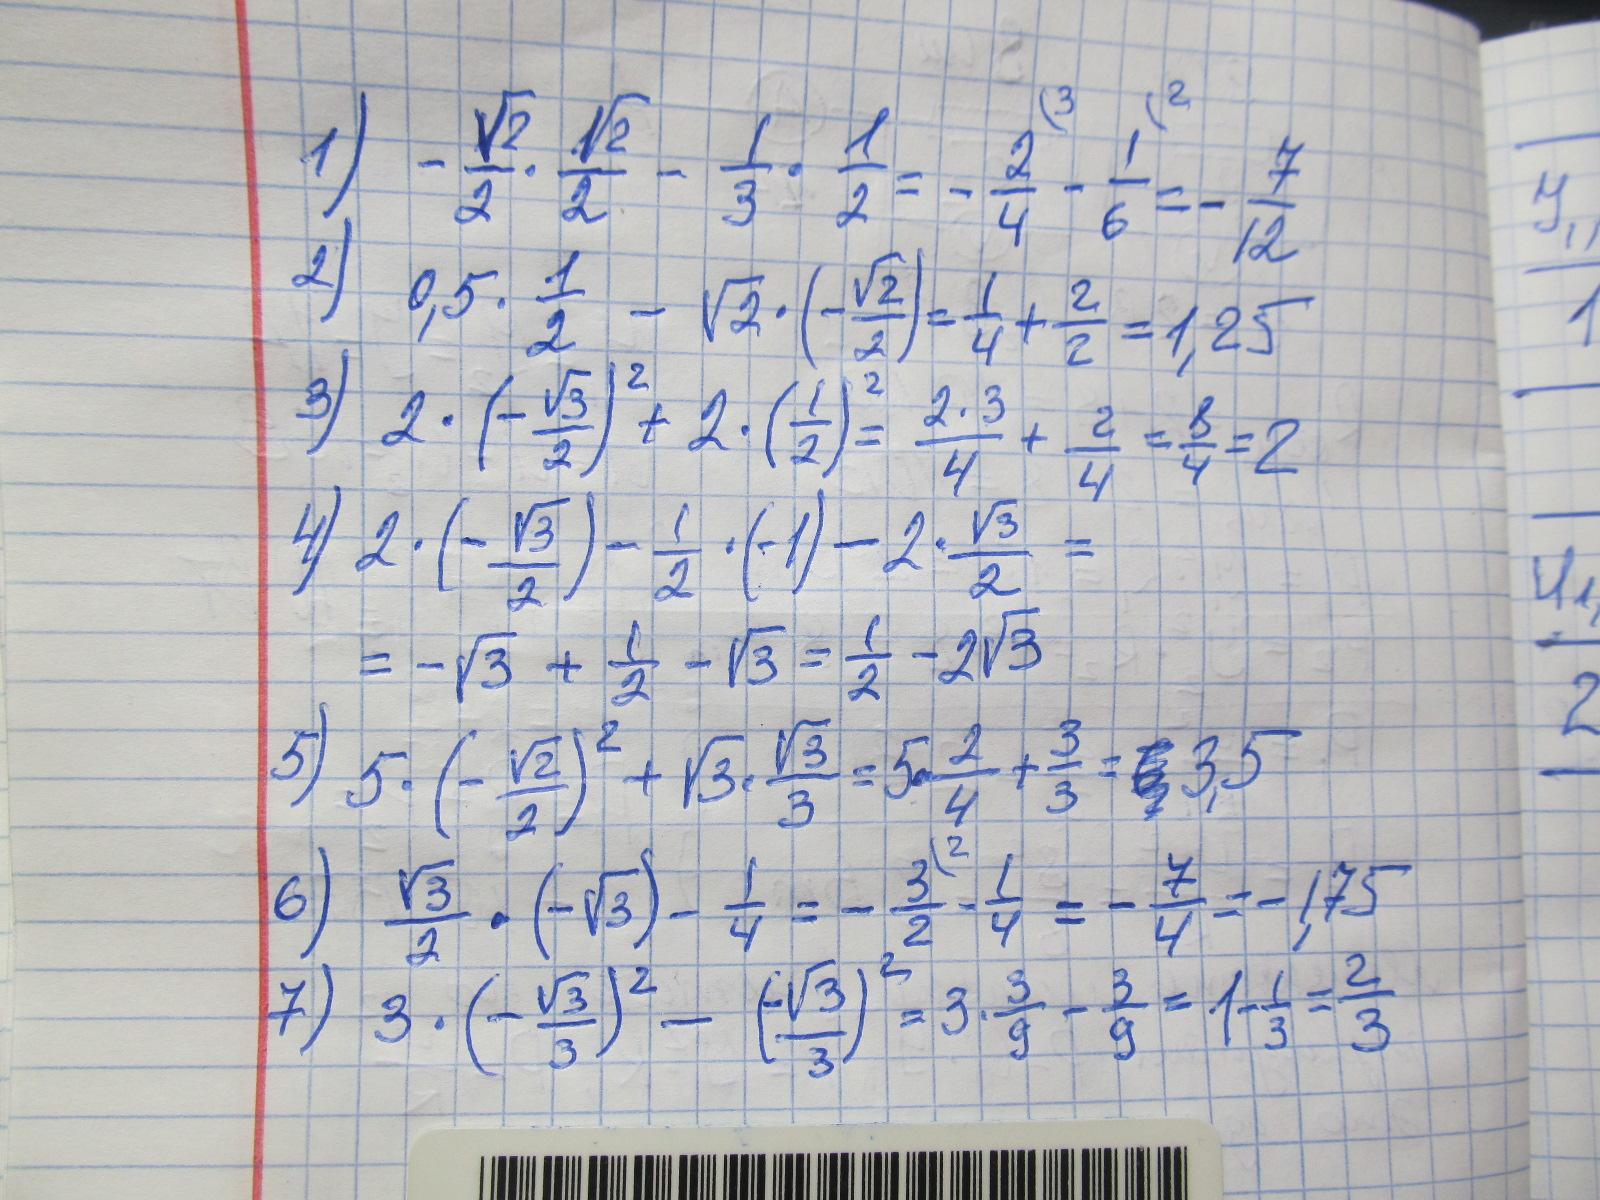 1) -√2/2 · √2/2 - 1/3 · 1/2 = -2/4 (3 - 1/6 (2 = -7/12
2) 0,5 · 1/2 - √2 · (-√2/2) = 1/4 + 2/2 = 1,25
3) 2 · (-√3/2)² + 2 · (1/2)² = 2·3/4 + 2/4 = 8/4 = 2
4) 2 · (-√3/2) - 1/2 · (-1) - 2 · √3/2 =
= -√3 + 1/2 - √3 = 1/2 - 2√3
5) 5 · (-√2/2)² + √3 · √3/3 = 5 · 2/4 + 3/3 = 3,5
6) √3/2 · (-√3) - 1/4 = -3/2 (2 - 1/4 = -7/4 = -1,75
7) 3 · (-√3/3)² - (-√3/3)² = 3 · 3/9 - 3/9 = 1 - 1/3 = 2/3
1
2